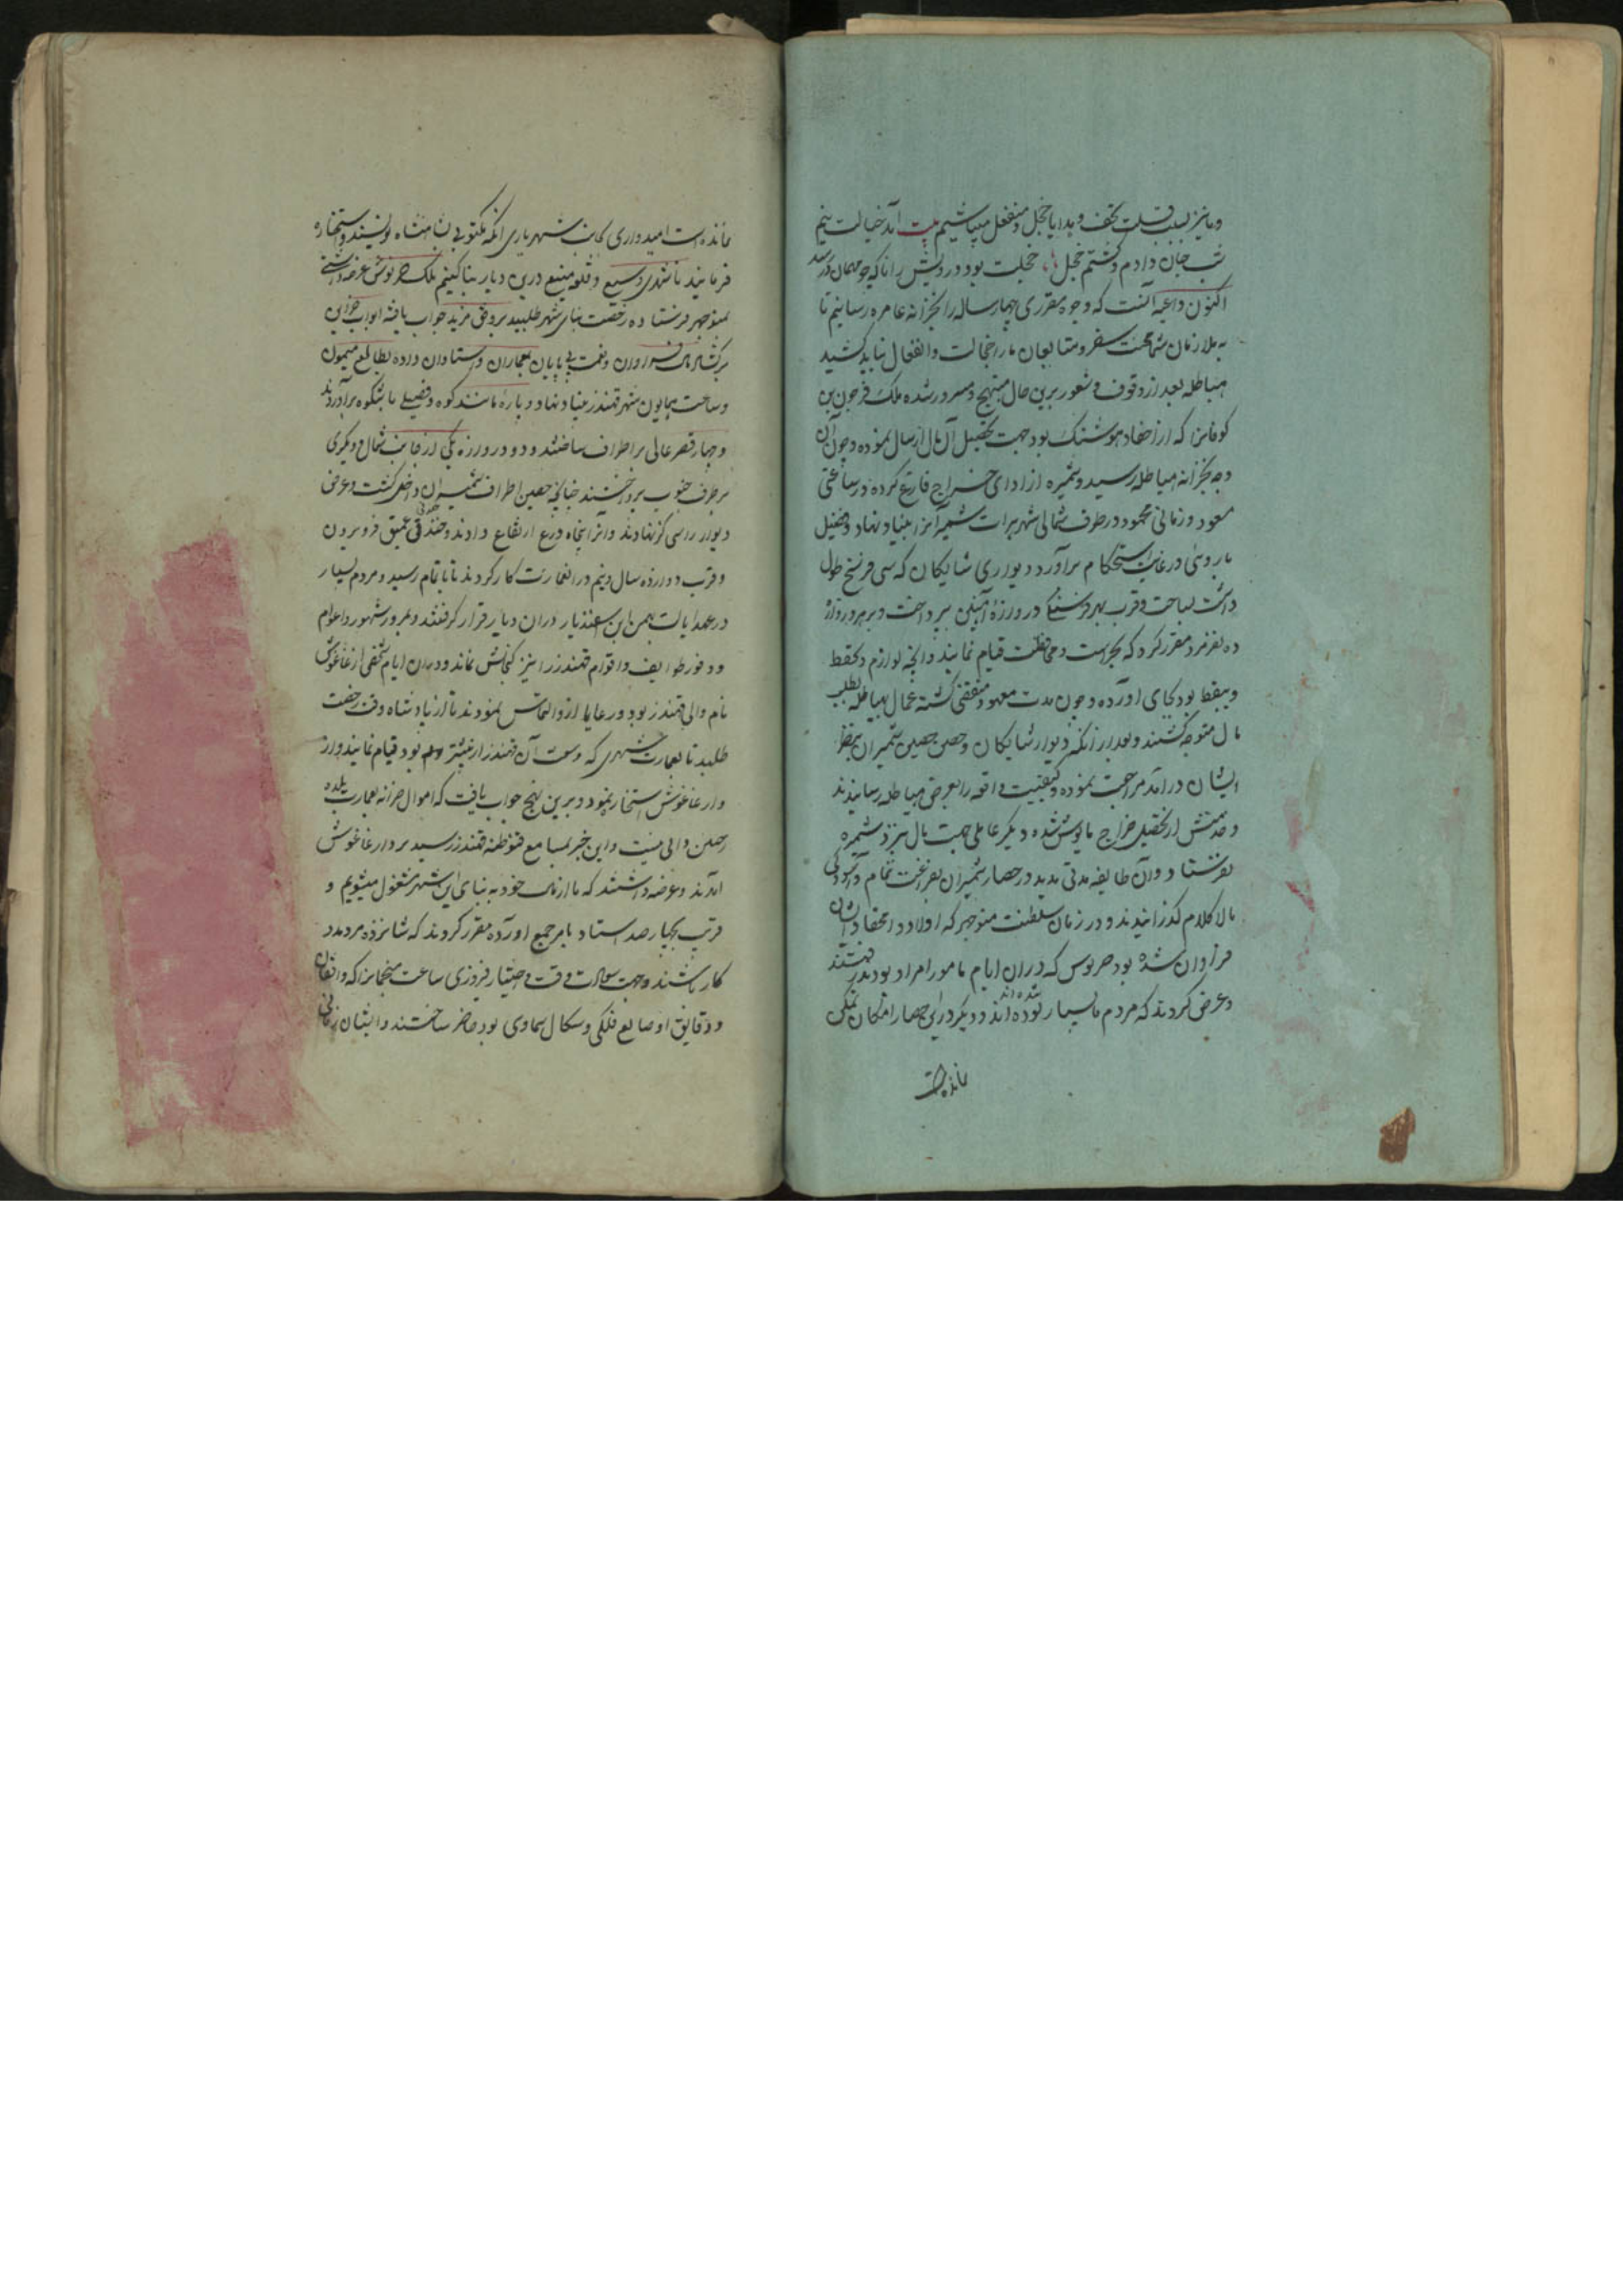 و ما نیز بسبب قلت تحف و هدایا خجل و منفعل میباشیم بیت آمد خیالت نیم
شب جان دادم و گشتم خجل خجلت بود درویش را ناگه چو مهمان در رسد
اکنون داعیه آنست که وجوه مقرری چهار ساله را بخزانه عامره رسانیم تا
به ملازمان شما محنت سفر و متابعان ما را خجالت و انفعال نباید کشید
هیاطله بعد از وقوف و شعور برین حال مبتهج و مسرور شده ملک
که از احفاد هوشنگ بود جهت تحصیل آن مال ارسال نموده و چون آن
وجه بخزانه هیاطله رسید و شمیره از ادای خراج فارغ کرده در ساعتی
مسعود و زمانی محمود در طرف شمالی شهر هرات شمیران را بنیاد نهاد و
در غایت استحکام برآورد دیواری شایگان که سی فرسخ طول
داشت بساخت و قرب بهر فرسنگی دروازه آهنین بپرداخت و بر هر دروازه
ده نفر مرد مقرر کرد که بحراست و محافظت قیام نمایند و آنچه لوازم
بود بجای آورده و چون مدت معهود منقضی گشته عمال هیاطله بطلب
مال متوجه گشتند و بعد از آنکه دیوار شایگان و حصن حصین شمیران بنظر
ایشان درآمد مراجعت نموده و کیفیت واقعه را بعرض هیاطله رسانیدند
از تحصیل خراج مایوس شده دیگر عاملی جهت مال نزد شمیره
نفرستاد و آن طایفه مدتی مدید در حصار شمیران بفراغت تمام و آسودگی
مالا کلام گذرانیدند و در زمان سلطنت منوچهر که اولاد و احفاد ایشان
فراوان شده بود خرنوش که در آن ایام مامور امراو بودند رفتند
و عرض کردند که مردم ما بسیار شده اند و دیگر در این حصار امکان تمکن
مانده است
نمانده است امیدواری بجانب شهریاری آنکه مکتوبی بشاهنشاه نویسند و استجازه
فرمایند تا شهری وسیع و قلعه منیع درین دیار بنا کنیم ملک خرنوش عرضه داشتی
بمنوچهر فرستاده رخصت بنای شهر طلبید بر وفق مزید جواب یافته ابواب خزاین
برگشاد فراوان و نعمت بی پایان بمعماران و استادان داده بطالع میمون
و ساعت همایون شهر قهندز بنیاد نهاد و باره مانند کوه و فصیلی باشکوه برآوردند
و چهار قصر عالی بر اطراف ساختند و دو دروازه یکی از جانب شمال و دیگری
بر طرف جنوب بپرداختند چنانچه حصین اطراف شمیران داخل گشت و عرض
دیوار را سی گز نهادند و آنرا پنجاه ذرع ارتفاع دادند و خندقی عمیق فرو بردن
و قرب دوازده سال و نیم در آن عمارت کار کردند تا باتمام رسید و مردم بسیار
در عهد ایالت بهمن ابن اسفندیار در آن دیار قرار گرفتند و بمرور شهور و اعوام
و وفور طوایف و اقوام قهندز را نیز گنجایش نماند و در آن ایام شخصی ارغاغوش
نام والی قهندز بود و رعایا از او التماس نمودند تا از پادشاه وقت رخصت
طلبد تا بعمارت شهری که وسعت آن قهندز از بیشتر بود قیام نمایند و از
وارغاغوش استجازه نمود و برین نهج جواب یافت که اموال خزانه بعمارت بلده
وافی نیست و این خبر بمسامع قهندز رسید بر در ارغاغوش
آمدند و عرضه داشتند که ما از مال خود به بنای این شهر مشغول میشویم و
قریب بچهار صد استاد ماهر جمع آورده مقرر کردند که شانزده مرد مدد
کار باشند و جهت سوالات وقت و اختیار فیروزی ساعت منجمانرا که واقفان
و دقایق اوضاع فلکی و اشکال سماوی بود حاضر ساختند و ایشان زمانی